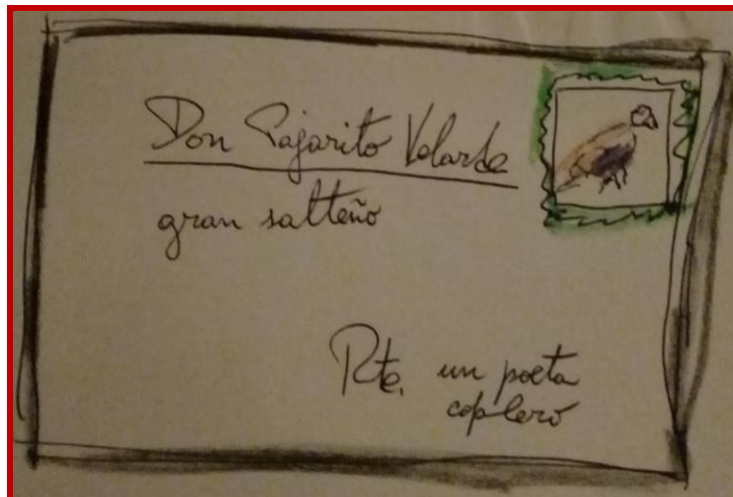 Don Pajarito Velarde
gran salteño
Rte. un poeta
coplero